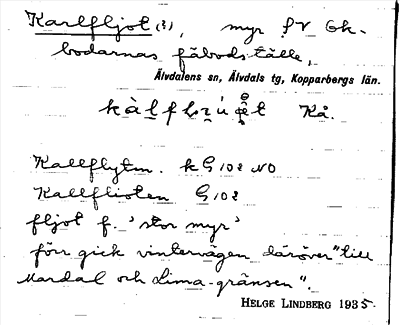 Karlfljot (?), myr SV Ek-
bodarnas fäbodställe,
Älvdalens sn, Älvdals tg, Kopparbergs län.
Kå.
Kallflyten. k G 102 NO
Kallflioten G 102
fljot f. 'stor myr'
förr gick vintervägen däröver "till
Mardal och Lima-gränsen".
HELGE LINDBERG 1935.